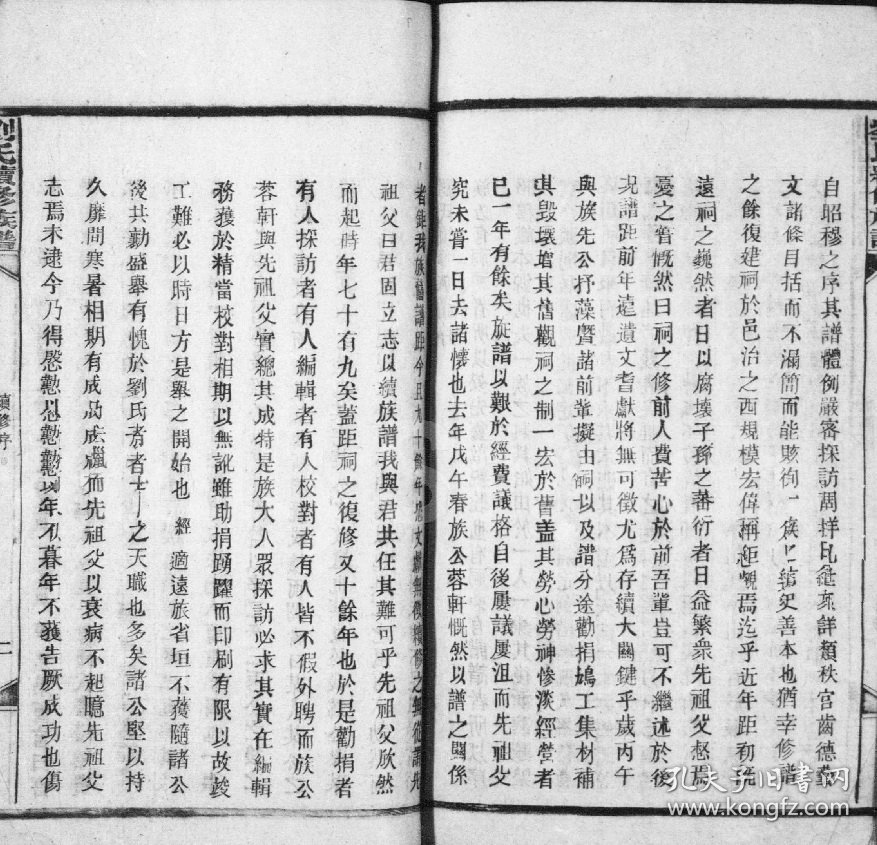 自昭穆之序其譜體例嚴審探訪周詳比鍵東詳類秩宮齒德藝
文諸條目括而不漏簡而能賅徇一族之譜史善本也猶幸修譜
之餘復建祠於邑治之西規模宏偉稱鉅觀焉迄乎近年距初
遠祠之巍然者日以腐壞子孫之蕃衍者日益繁衆先祖父惄焉
憂之嘗慨然曰祠之修前人費苦心於前吾輩豈可不繼述於後
況譜距前年遠遺文耆獻將無可徵尤為存續大關鍵乎歲丙午
與族先公抒藻暨諸前輩擬由祠以及譜分途勸捐鳩工集材補
其毀壞增其舊觀祠之制一宏於舊蓋其勞心勞神慘淡經營者
已一年有餘矣族譜以艱於經費議格自後屢議屢沮而先祖父
究未嘗一日去諸懷也去年戊午春族公蓉軒慨然以譜之關係
者鉅我族舊譜距今且九十餘年
祖父曰君固立志以續族譜我與君共任其難可乎先祖父欣然
而起時年七十有九矣蓋距祠之復修又十餘年也於是勸捐者
有人探訪者有人編輯者有人校對者有人皆不假外聘而族公
蓉軒與先祖父實總其成特是族大人眾探訪必求其實在編輯
務獲於精當校對相期以無訛雖助捐踴躍而印刷有限以故竣
工難必以時日方是舉之開始也 經 適遠旅省垣不獲隨諸公
後共勤盛舉有愧於劉氏耆者士之天職也多矣諸公堅以持
久靡間寒暑相期有成而先祖父以衰病不起聽先祖父
志焉未逮今乃得慇懃以年不暮年不獲告厥成功也傷
劉氏續修族譜
續修序
二
孔夫子旧书网
www.kongfz.com